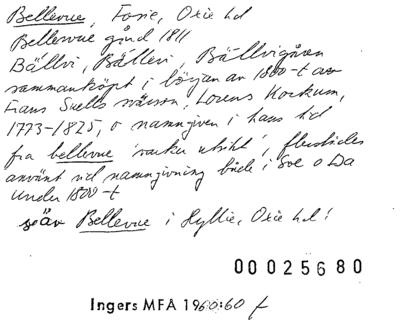 Bellevue, Fosie, Oxie hd
Bellevue gård 1811
Bällvi, Bällevi, Bällvigåren
sammanköpt i början av 1800-t av
Frans Suells svärson, Lorens Kockum,
1773-1825, o namngiven i hans tid
fra bellevue 'vacker utsikt', flerstädes
använt vid namngivning både i Sve o Da
under 1800-t
Bellevue i Hyllie, Oxie hd!
00025680
Ingers MFA 1960:60